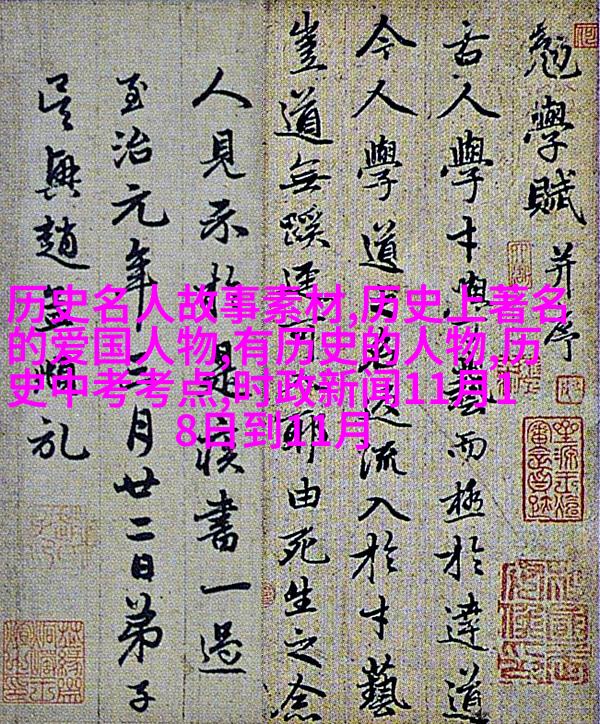 历史名人故事素材,历史上著名
的爱国人物,有历史的人物,历
史中考考点,时政新闻11月1
8日到11月
勉學賦并序
古人學才藝而極於達道
今人學道乃流入於才藝
豈道無蹊逕耶由死生之念
人見示於是書一過
至治元年月廿二日弟子
吳興趙孟